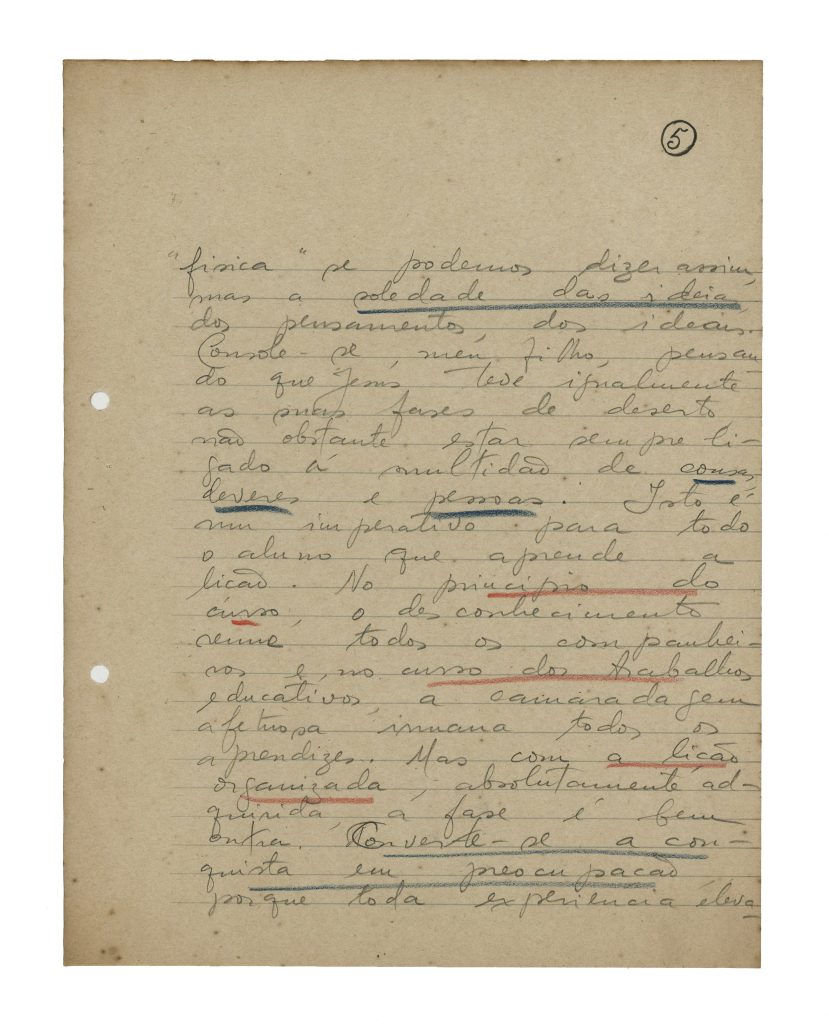 5
"fisica" se podemos dizer assim,
mas a soledade das ideia
dos pensamentos, dos ideais.
Console-se, meu filho, pensan
do que Jesús teve igualmente
as suas fases de deserto,
não obstante estar sempre li-
gado á multidão de cousas
deveres e pessoas. Isto é
um imperativo para todo
o aluno que aprende a
licão. No princípio do
curso, o desconhecimento
reune todos os companhei-
ros e, no curso dos trabalhos
educativos, a camaradagem
afetuosa irmana todos os
aprendizes. Mas com a lição
organizada, absolutamente ad-
quirida, a fase é bem
outra. Converte-se a con-
quista em preocupacão
porque toda experiencia eleva-